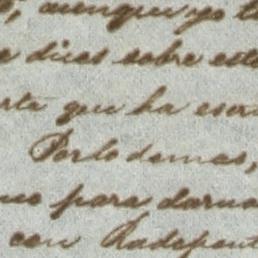 aunque yo
dices sobre este
que ha escri
Por lo demas,
para darno
con Radepont